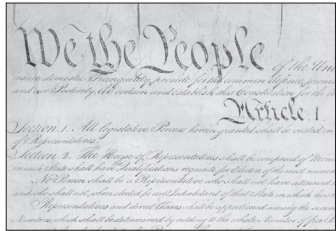 We the People of the Unit
insure domestic Tranquility, provide for the common defence, promot
and our Posterity, do ordain and establish this Constitution for the
Article. I.
Section. 1. All legislative Powers herein granted shall be vested
of Representatives.
Section. 2. The House of Representatives shall be composed of
in each State shall have Qualifications requisite for Electors of the most numer
No Person shall be a Representative who shall not have attained
and who shall not, when elected, be an Inhabitant of that State in which he
Representatives and direct Taxes shall be apportioned among the several
Numbers, which shall be determined by adding to the whole Number of free